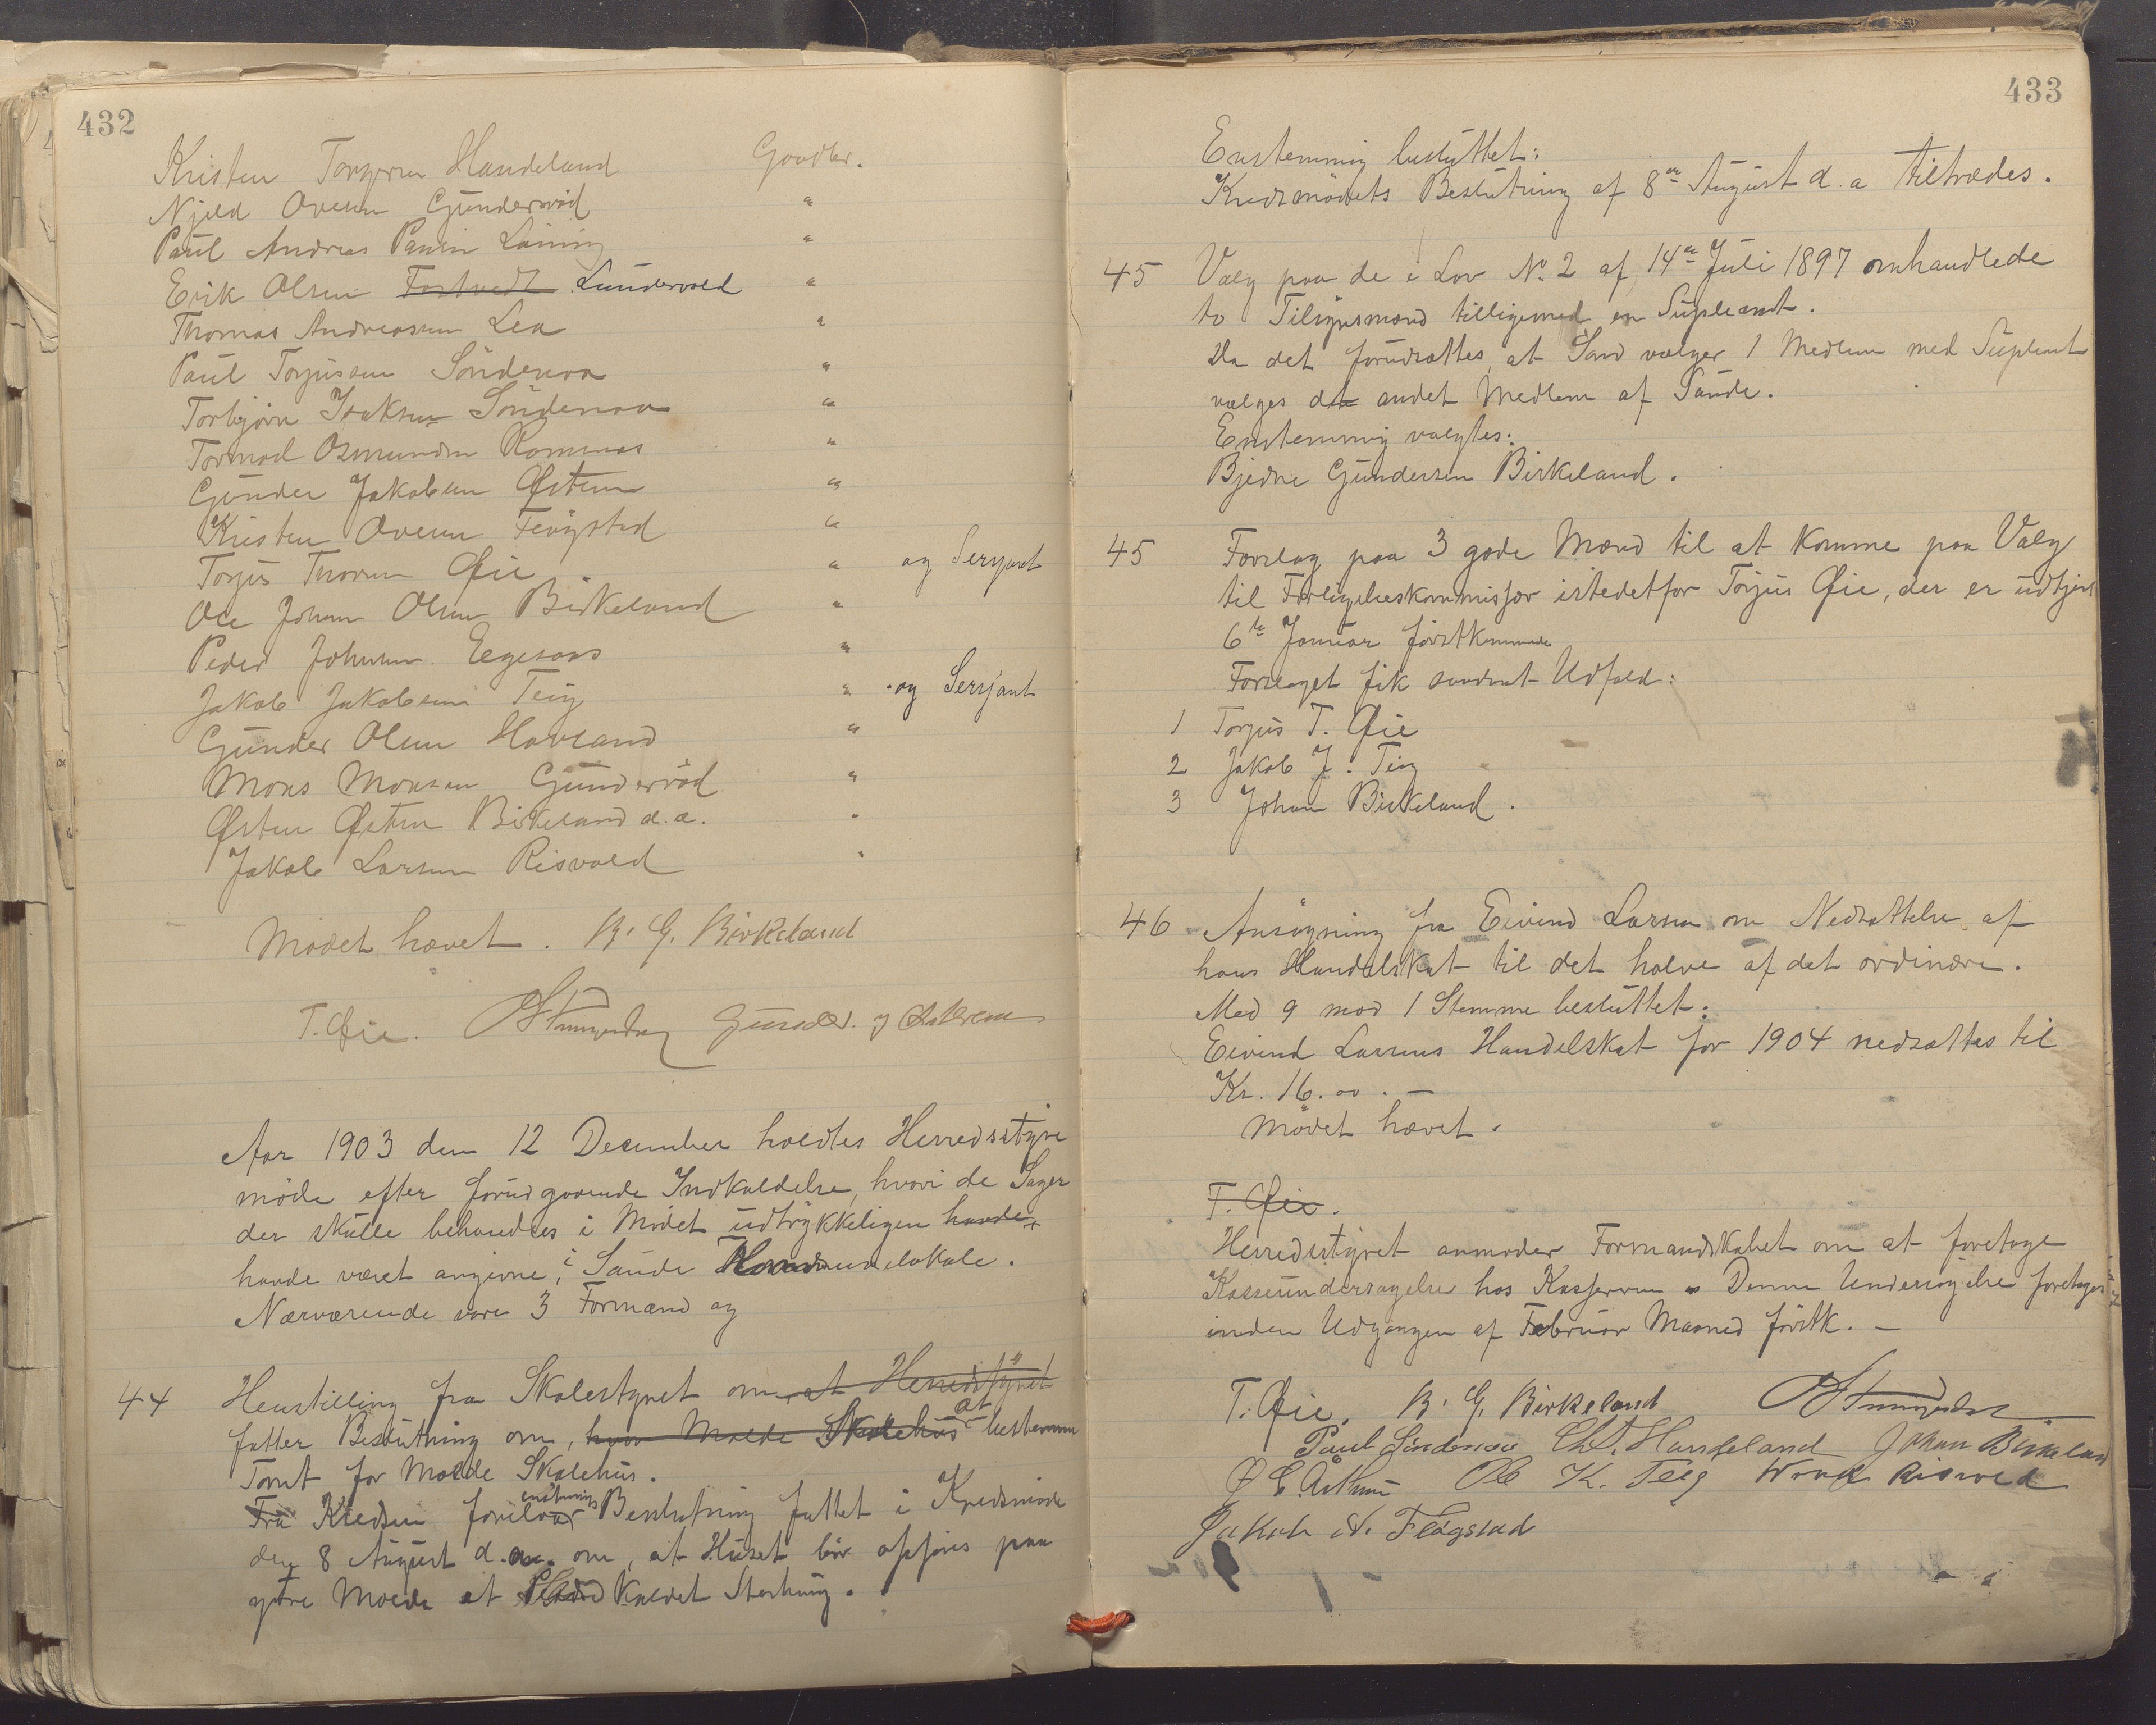 432
Kristen Handeland Gaardbr.
Njeld Ovesen Gundersvåd "
Paul Andreas Laining "
Erik Olsen Lundevold "
Thomas Andreassen Lea "
Paul Torjussen Söndenaa "
Torbjörn Isaksen Söndenaa "
Tormod Osmundsen "
Gunder Jakobsen Østrem "
Kristen Ovesen "
Torjus Thorsen Øie " og Serjant
Ole Johan Olsen Birkeland "
Peder Johnsen "
Jakob Jakobsen Teig " og Serjant
Gunder Olsen Hovland "
Mons Monsen Gundersvåd "
Østen Østen Birkeland d.æ. "
Jakob Larsen Risvold "
Mödet hævet. B. G. Birkeland
T. Øie. Gunder. J Østrem
Aar 1903 den 12 December holdtes Herredsstyre
möde efter forudgaaende Indkaldelse, hvori de Sager
der skulle behandles i Mödet udtrykkeligen havde
havde været angivne, i Saude
Nærværende vare 3 Formænd og
44 Henstilling fra Skolestyret om at Herredsstyret
fatter Beslutning om, hvor Molde Skolehus at bestemme
Tomt for Molde Skolehus.
Fra Kredsen foreloar enstemmig Beslutning fattet i Kredsmöde
den 8 August d.a. om, at Huset bör opföres paa
ytre Molde et kaldet
433
Enstemmig besluttet:
Kredsmödets Beslutning af 8de August d.a tiltrædes.
45 Valg paa de i Lov No. 2 af 14de Juli 1897 omhandlede
to Tilsynsmænd tilligemed en Supleant.
Da det forudsættes, at Sand vælger 1 Medlem med Supleant
vælges det andet Medlem af Saude.
Enstemmig valgtes:
Bjedne Gundersen Birkeland.
45 Forslag paa 3 gode Mænd til at komme paa Valg
til Forligelseskommissær istedetfor Torjus Øie, der er udtjent
6te Januar förstkommende
Forslaget fik saadant Udfald:
1 Torjus T. Øie
2 Jakob J. Teig
3 Johan Birkeland.
46 Ansögning fra Eivind Larsen om Nedsættelse af
hans Handelskat til det halve af det ordinære.
Med 9 mod 1 Stemme besluttet:
Eivind Larsens Handelskat for 1904 nedsættes til
Kr. 16.00.—
Mödet hævet.
T. Øie.
Herredsstyret anmoder Formandskabet om at foretage
Kasseundersøgelse hos Kassereren. Denne Undersøgelse foretages
inden Udgangen af Februar Maaned förstk. —
T. Øie. B. G. Birkeland
Paul Söndenaa Chr. T. Handeland Johan Birkeland
Ole K. Teig Risvold
Jakob N. Flögstad